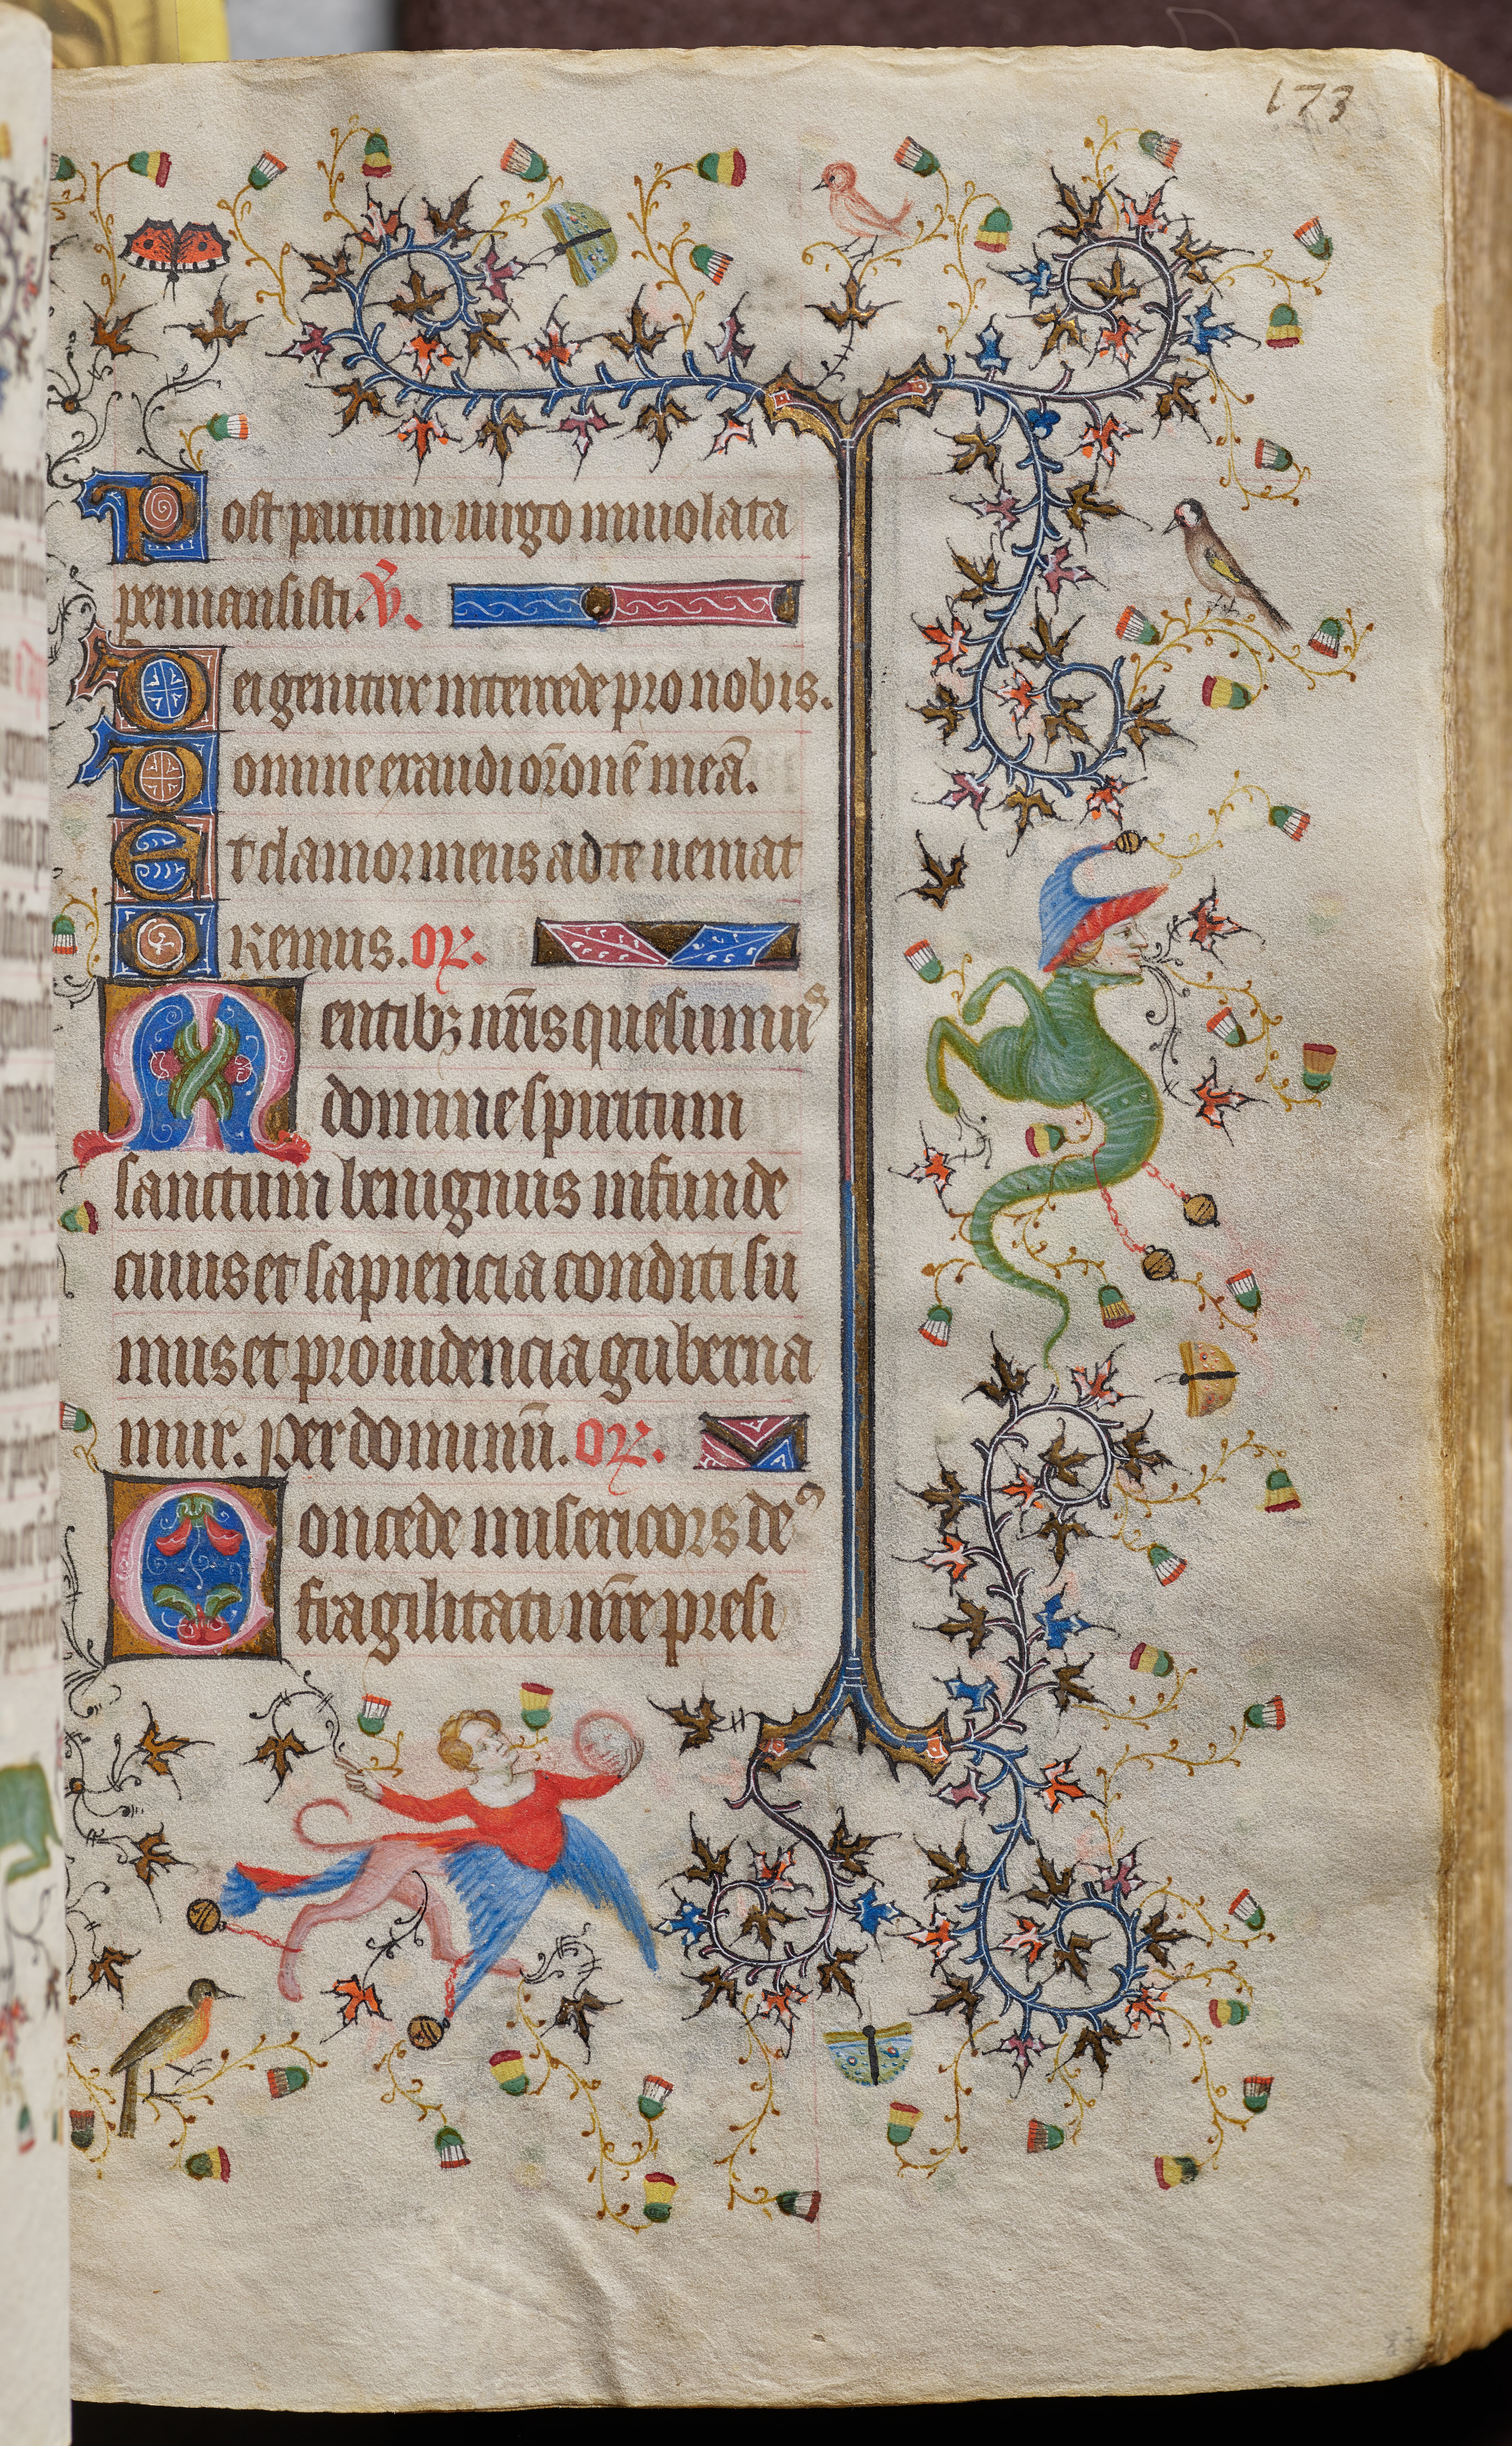 173
Post partum uirgo inuiolata
permansisti. V̄.
Dei genitrix intercede pro nobis.
Domine exaudi or̄onē meā.
Et clamor meus ad te ueniat
Oremus. or̄.
Mentibꝫ nr̄is quesumus
domine spiritum
sanctum benignus infunde
cuius et sapiencia conditi su
mus et prouidencia guberna
mur. Per dominū. or̄.
Concede misericors deus
fragilitati nr̄e presi